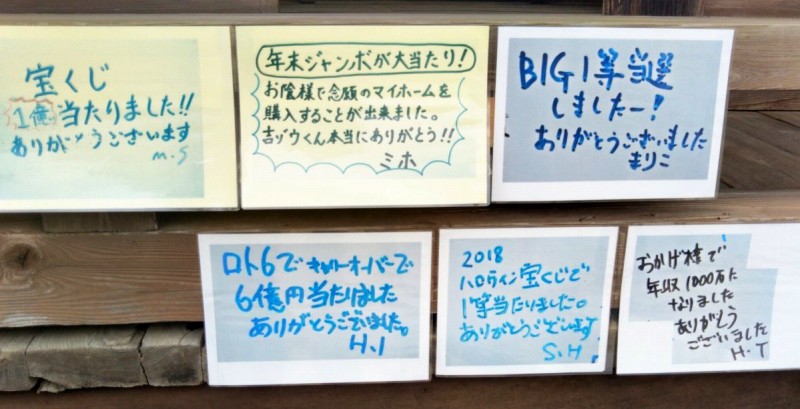 宝くじ
1億当たりました!!
ありがとうございます
M.S
年末ジャンボが大当たり!
お陰様で念願のマイホームを
購入することが出来ました。
吉ゾウくん本当にありがとう!!
ミホ
BIG1等当選
しましたー!
ありがとうございました
まりこ
ロト6でキャリーオーバーで
6億円当たりました
ありがとうございました。
H.I
2018
ハロウィン宝くじで
1等当たりました。
ありがとうございます
S.H
おかげ様で
年収1000万に
なりました
ありがとう
ございました
H.T